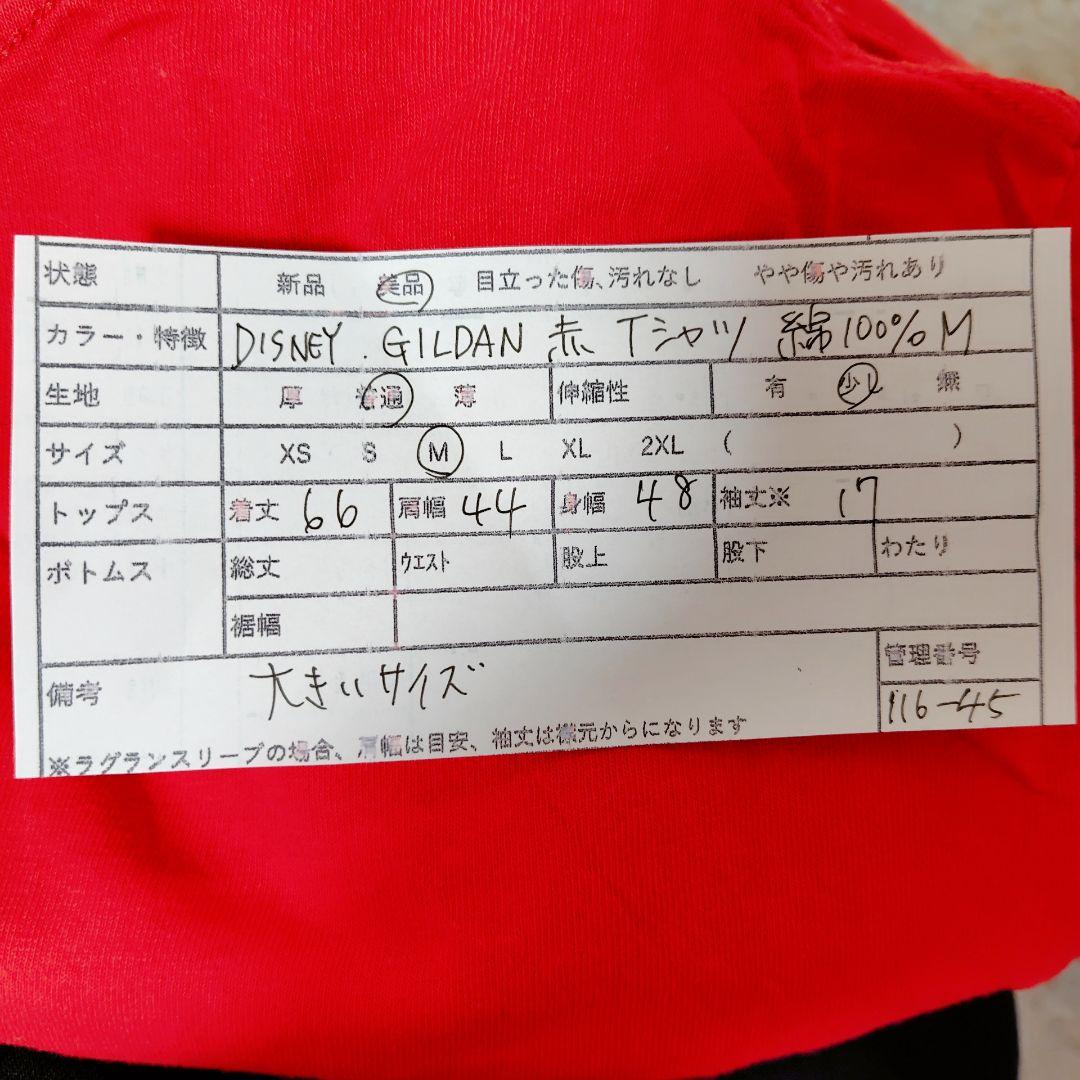 状態 新品 美品 目立った傷、汚れなし やや傷や汚れあり
カラー・特徴 DISNEY . GILDAN 赤 Tシャツ 綿100% M
生地 厚 普通 薄 伸縮性 有 少し 無
サイズ XS S M L XL 2XL ( )
トップス 着丈 66 肩幅 44 身幅 48 袖丈※ 17
ボトムス 総丈 ウエスト 股上 股下 わたり
裾幅
備考 大きいサイズ 管理番号
116-45
※ラグランスリーブの場合、肩幅は目安、袖丈は襟元からになります